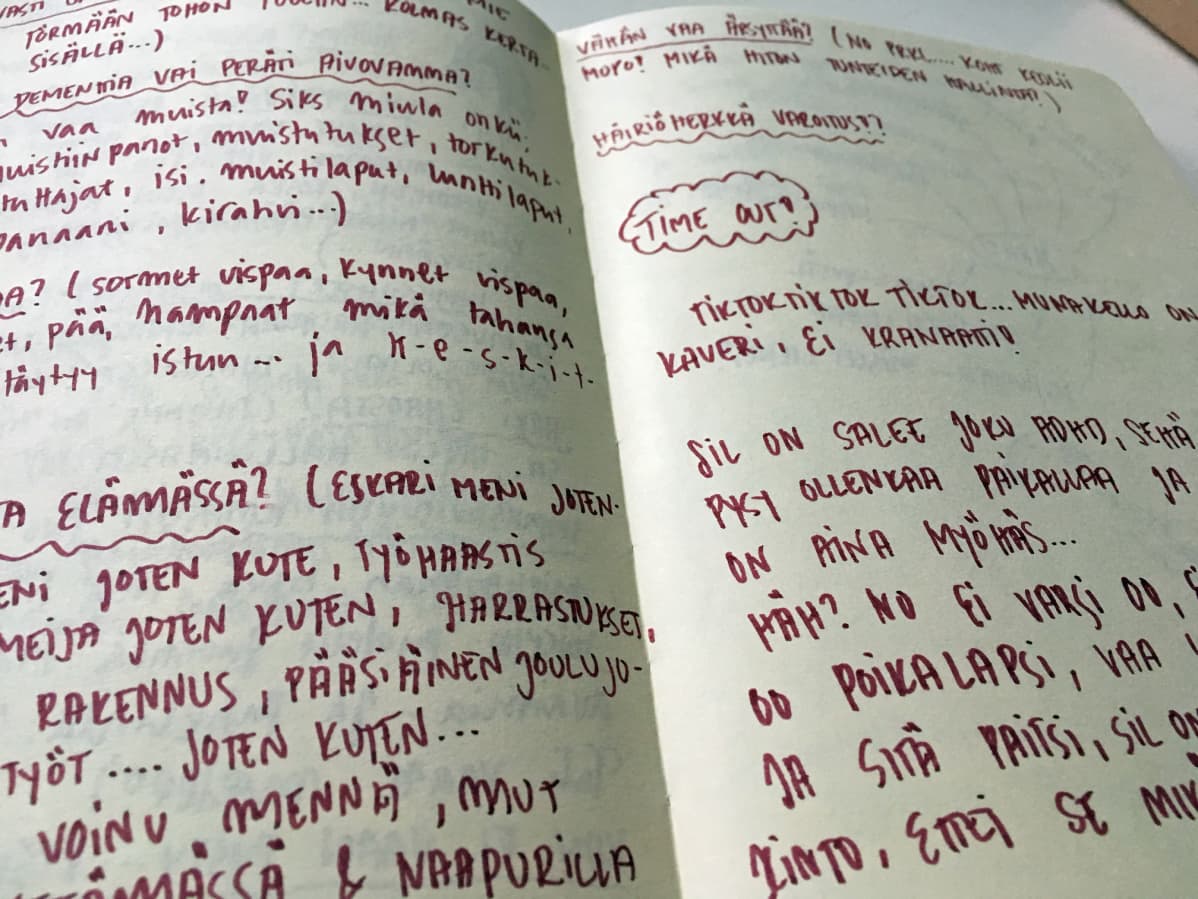 TÖRMÄÄN TOHON KOLMAS KERTA...
SISÄLLÄ...)
DEMENTIA VAI PERÄTI AIVOVAMMA?
vaa muista! Siks miula on kii.
muistiinpanot, muistutukset, torkutuk-
Hajat, isi. muistilaput, lunttilaput,
banaani, kirahvi...)
? (sormet vispaa, kynnet vispaa,
pää, hampaat mikä tahansa
täytyy istun... ja k-e-s-k-i-t-
ELÄMÄSSÄ? (ESKARI MENI JOTEN-
JOTEN KUTE, TYÖHAASTIS
JOTEN KUTEN, HARRASTUKSET,
RAKENNUS, PÄÄSIÄINEN JOULU JO-
TYÖT.... JOTEN KUTEN...
VOINU MENNÄ, MUT
& NAAPURILLA
VÄHÄN VAA ÄRSYTÄÄ? (NO PRKL.... KOHT KEULII
MOPO! MIKÄ HITON TUNTEIDEN HALLINTA!)
HÄIRIÖHERKKÄ VAROITUS!?
TIME OUT!
TIKTOKTIKTOK TIKTOK... MUNAKELLO ON
KAVERI, EI KRANAATI!
SIL ON SALEE JOKU ADHD, SEHÄ
PYSY OLLENKAA PAIKALLAA JA
ON AINA MYÖHÄS...
HÄH? NO EI VARSI OO,
OO POIKALAPSI, VAA
JA SITÄ PAITSI, SIL ON
KINTO, ETTEI SE